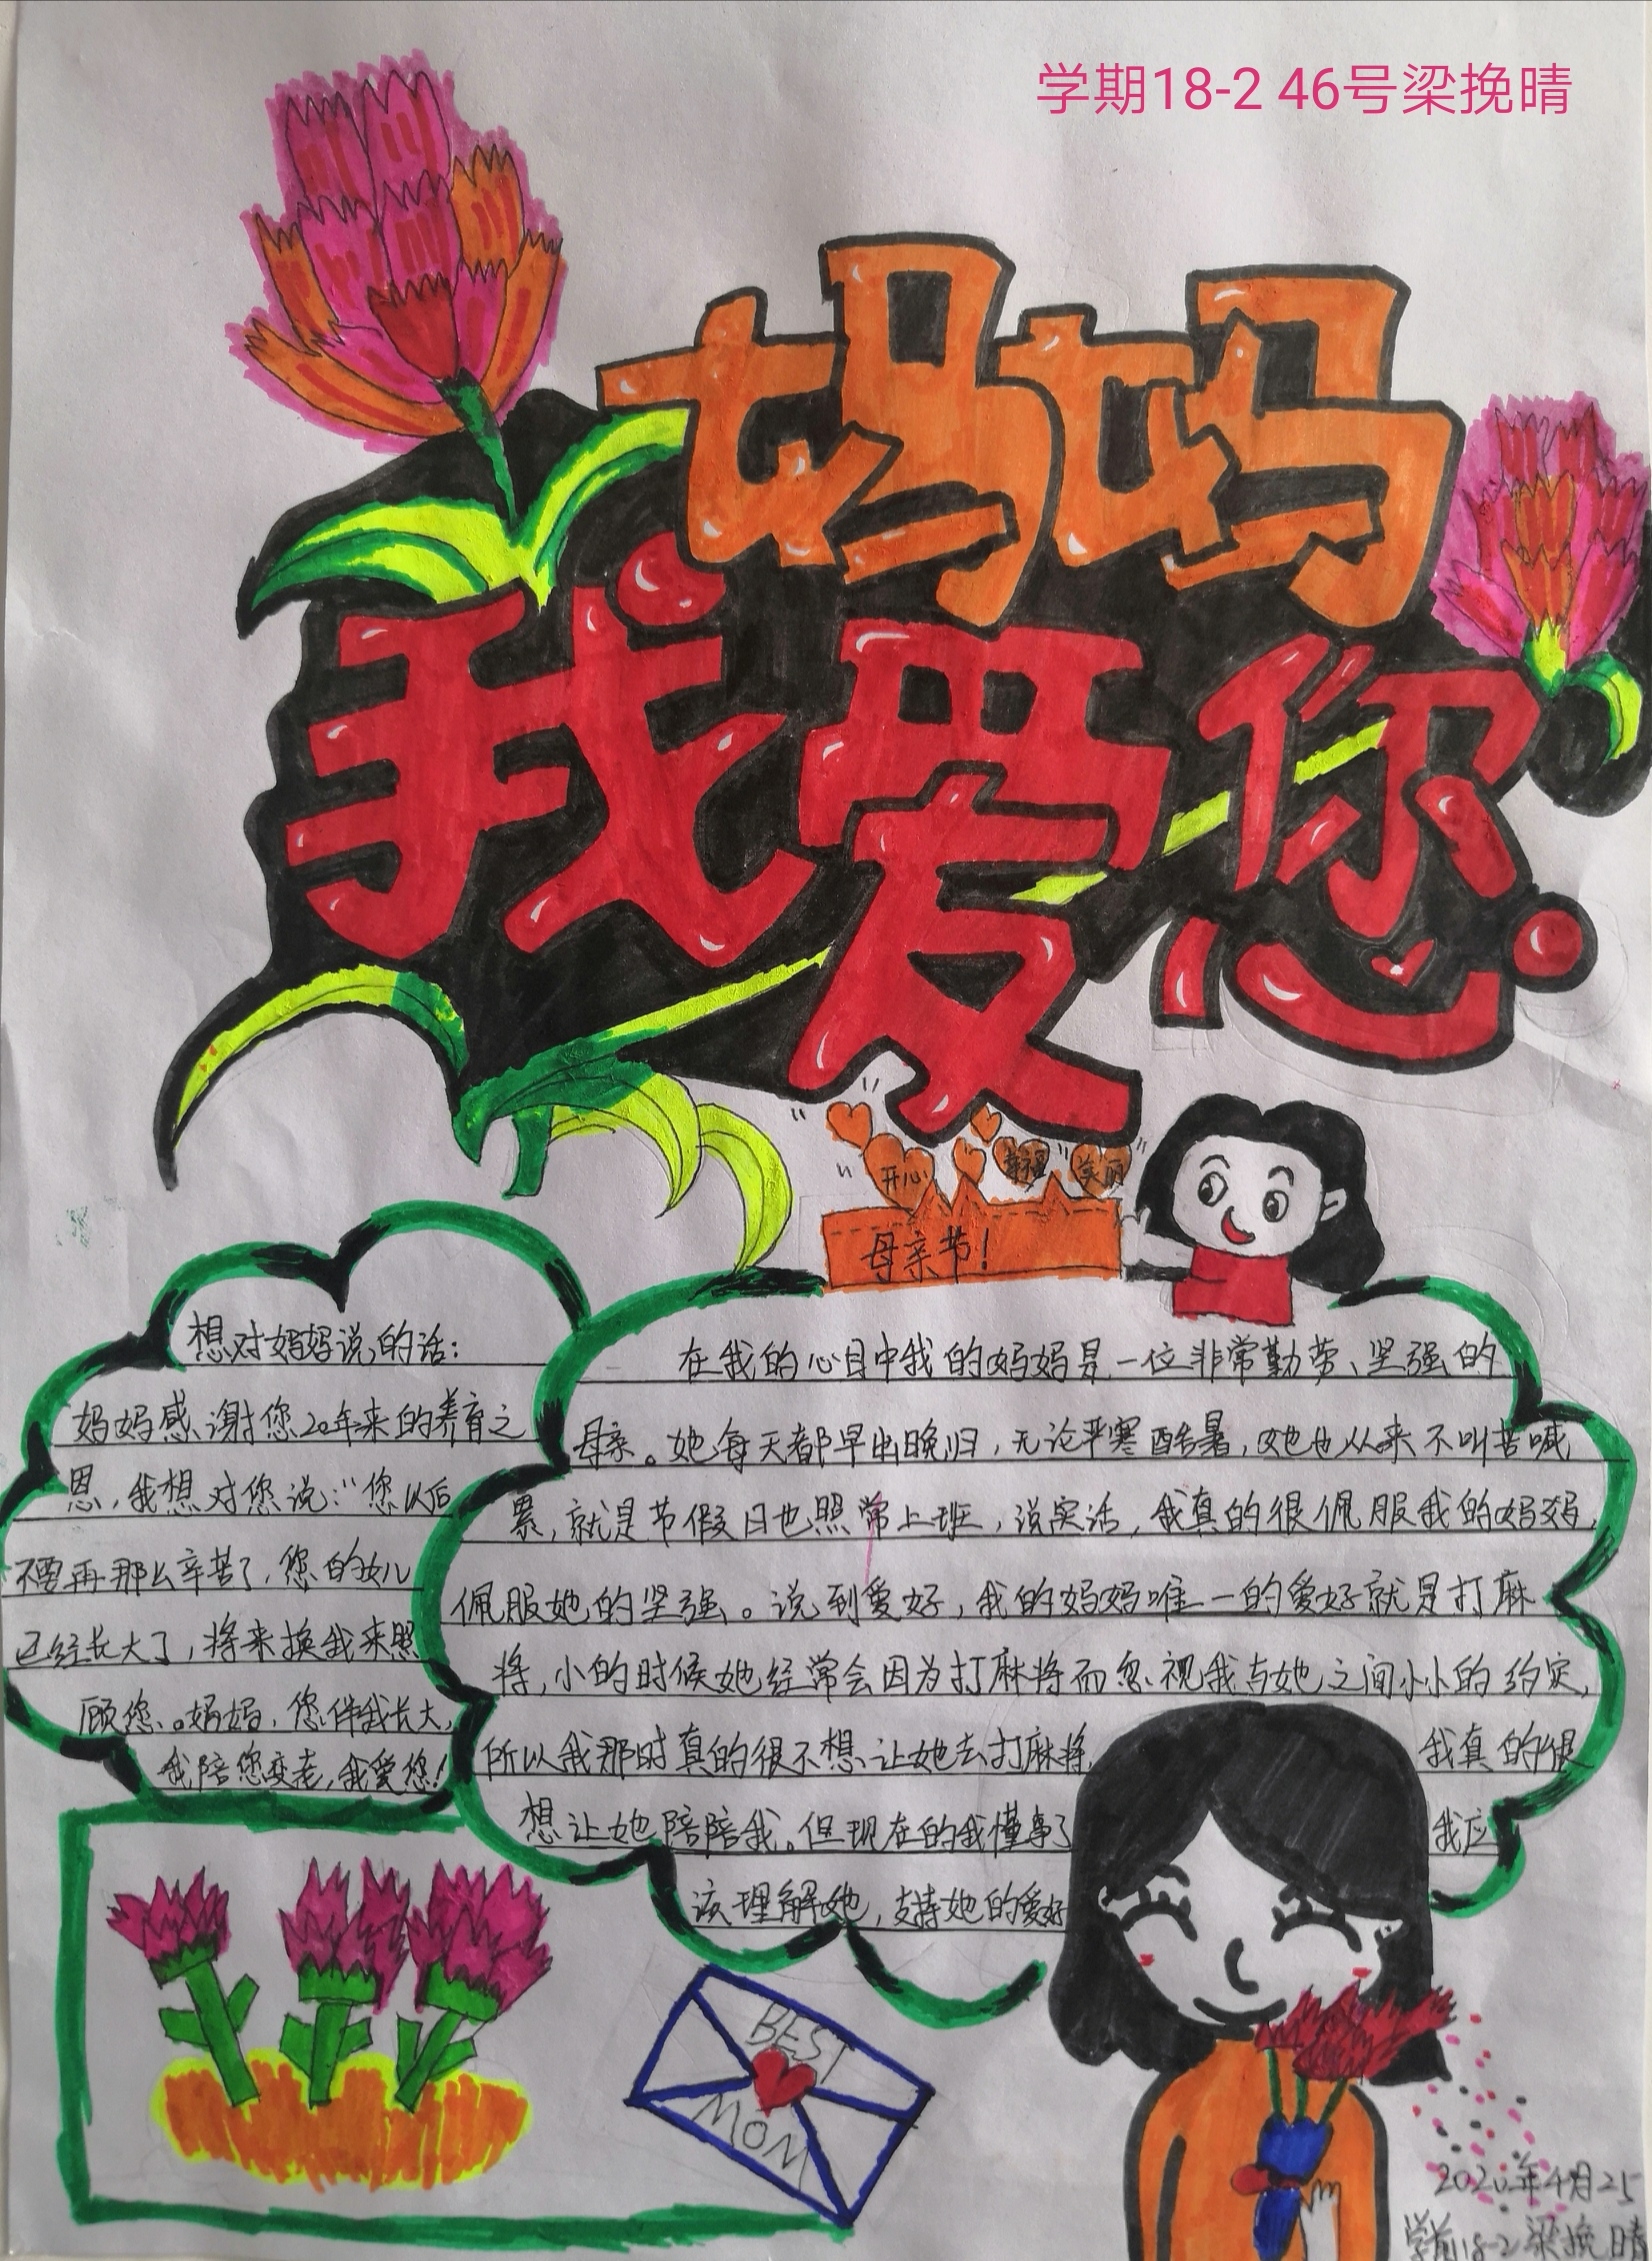 学期18-2 46号梁挽晴
妈妈
我爱您
开心
幸福
美丽
母亲节！
想对妈妈说的话：
妈妈感谢您20年来的养育之
恩，我想对您说：“您以后
不要再那么辛苦了，您的女儿
已经长大了，将来换我来照
顾您。妈妈，您伴我长大，
我陪您变老，我爱您！
在我的心目中我的妈妈是一位非常勤劳、坚强的
母亲。她每天都早出晚归，无论严寒酷暑，她也从来不叫苦喊
累，就是节假日也照常上班，说实话，我真的很佩服我的妈妈，
佩服她的坚强。说到爱好，我的妈妈唯一的爱好就是打麻
将，小的时候她经常会因为打麻将而忽视我与她之间小小的约定，
所以我那时真的很不想让她去打麻将，我真的很
想让她陪陪我。但现在的我懂事了我应
该理解她，支持她的爱好
BEST
MOM
2020年4月25
学前18-2梁挽晴